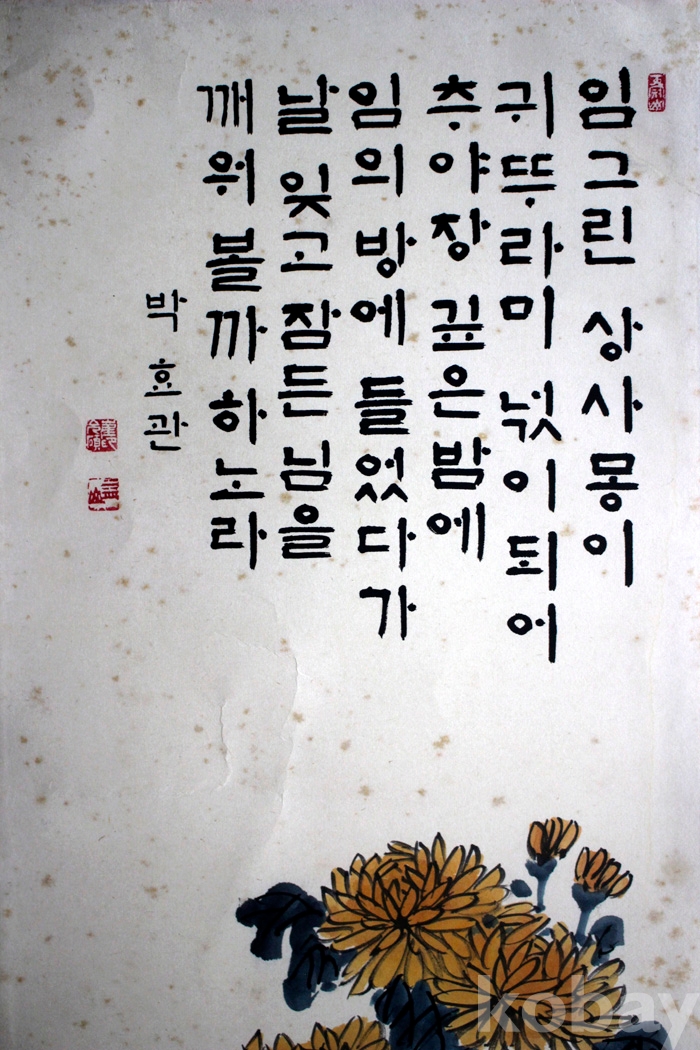 임그린 상사몽이
귀뚜라미 넋이 되어
추야장 깊은밤에
임의방에 들었다가
날 잊고 잠든 님을
깨워 볼까 하노라
박효관
kobay